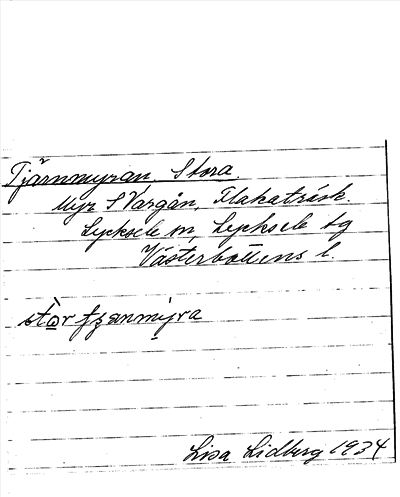 Tjärnmyran, Stora
Myr S Vargån, Flakaträsk.
Lycksele sn, Lycksele tg
Västerbottens l.
Lisa Lidberg 1934